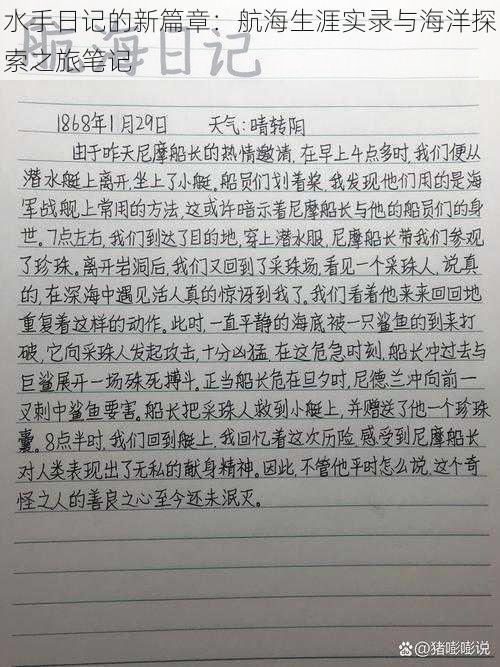 水手日记的新篇章：航海生涯实录与海洋探
索之旅笔记
航海日记
1868年1月29日 天气:晴转阴
由于昨天尼摩船长的热情邀请,在早上4点多时,我们便从
潜水艇上离开,坐上了小艇。船员们划着桨,我发现他们用的是海
军战舰上常用的方法,这或许暗示着尼摩船长与他的船员们的身
世。7点左右,我们到达了目的地,穿上潜水服,尼摩船长带我们参观
了珍珠。离开岩洞后,我们又回到了采珠场,看见一个采珠人,说真
的,在深海中遇见活人真的惊讶到我了。我们看着他来来回回地
重复着这样的动作。此时,一直平静的海底被一只鲨鱼的到来打
破,它向采珠人发起攻击,十分凶猛,在这危急时刻,船长冲过去与
巨鲨展开一场殊死搏斗。正当船长危在旦夕时,尼德.兰冲向前一
叉刺中鲨鱼要害。船长把采珠人救到小艇上,并赠送了他一个珍珠
囊。8点半时,我们回到艇上,我回忆着这次历险,感受到尼摩船长
对人类表现出了无私的献身精神。因此,不管他平时怎么说,这个奇
怪之人的善良之心至今还未泯灭。
@猪嘭嘭说